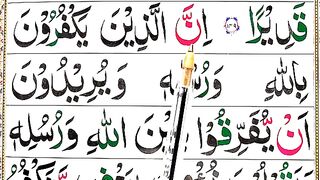 قَدِيْرًا ۝١٤٩ اِنَّ الَّذِيْنَ يَكْفُرُوْنَ
بِاللّٰهِ وَرُسُلِهٖ وَ يُرِيْدُوْنَ
اَنْ يُّفَرِّقُوْا بَيْنَ اللّٰهِ وَرُسُلِهٖ